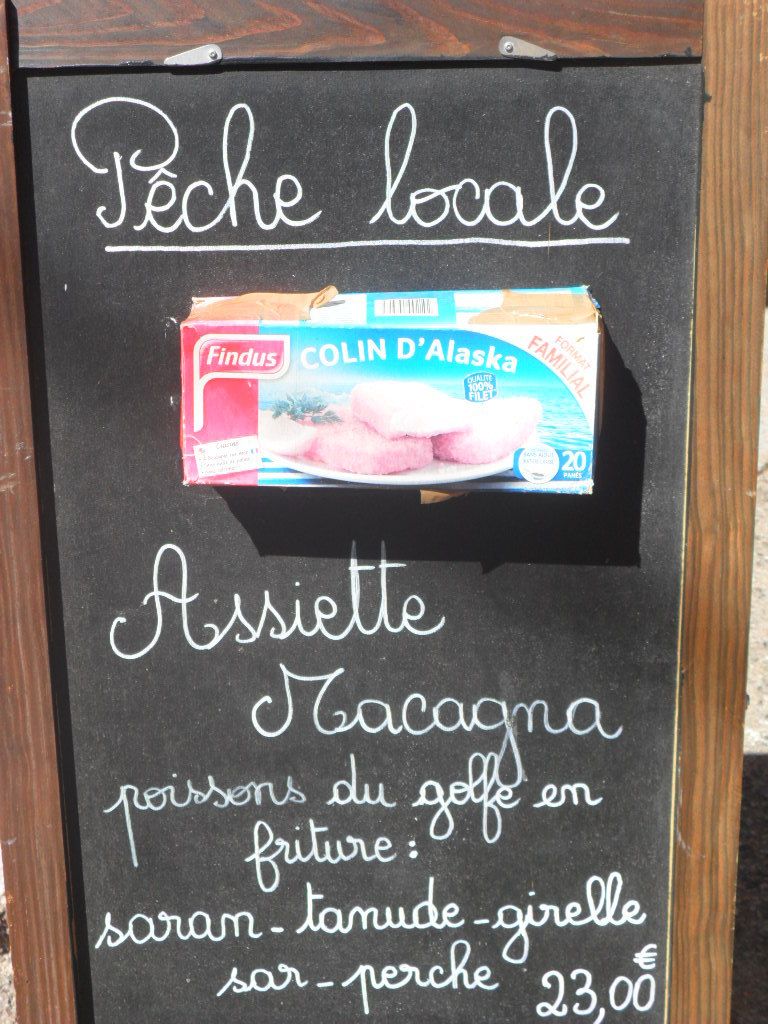 Pêche locale
Findus
COLIN D'Alaska
FORMAT
FAMILIAL
QUALITÉ
100%
FILET
20
PANÉS
Assiette
Macagna
poissons du golfe en
friture :
saran - tanude - girelle
sar - perche
23,00 €